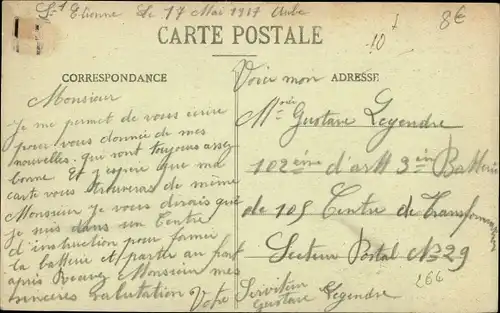 St Etienne Le 17 Mai 1917 Aube
8€
10
CARTE POSTALE
CORRESPONDANCE
Voici mon ADRESSE
Monsieur
Je me permet de vous ecrire
pour vous donnée de mes
nouvelles. qui sont toujours assez
bonne Et j'espere que ma
carte vous trouveras de même
Monsieur je vous dirais que
je suis dans un Centre
d'instruction pour former
la batterie et partir au front
après Recevez Monsieur mes
sinceres salutation Votre Serviteur
Gustave Legendre
Gustave Legendre
102 ème d'art 3 èm Batterie
de 105 Centre de Transformation
Secteur Postal N° 29
266